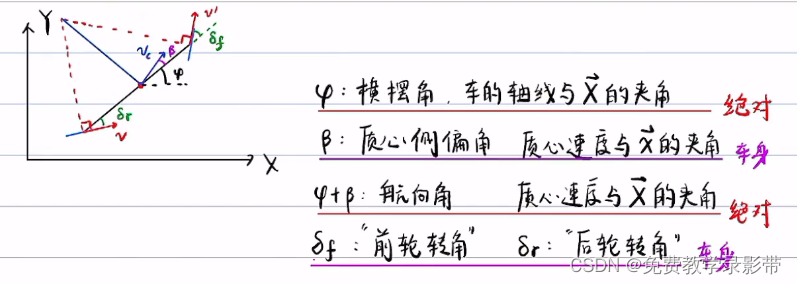 Y
v'
δf
v_c
β
φ
δr
v
X
φ：横摆角，车的轴线与X⃗的夹角 绝对
β：质心侧偏角 质心速度与x⃗的夹角 车身
φ+β：航向角 质心速度与X⃗的夹角 绝对
δf："前轮转角" δr："后轮转角" 车身
CSDN @免费教学录影带